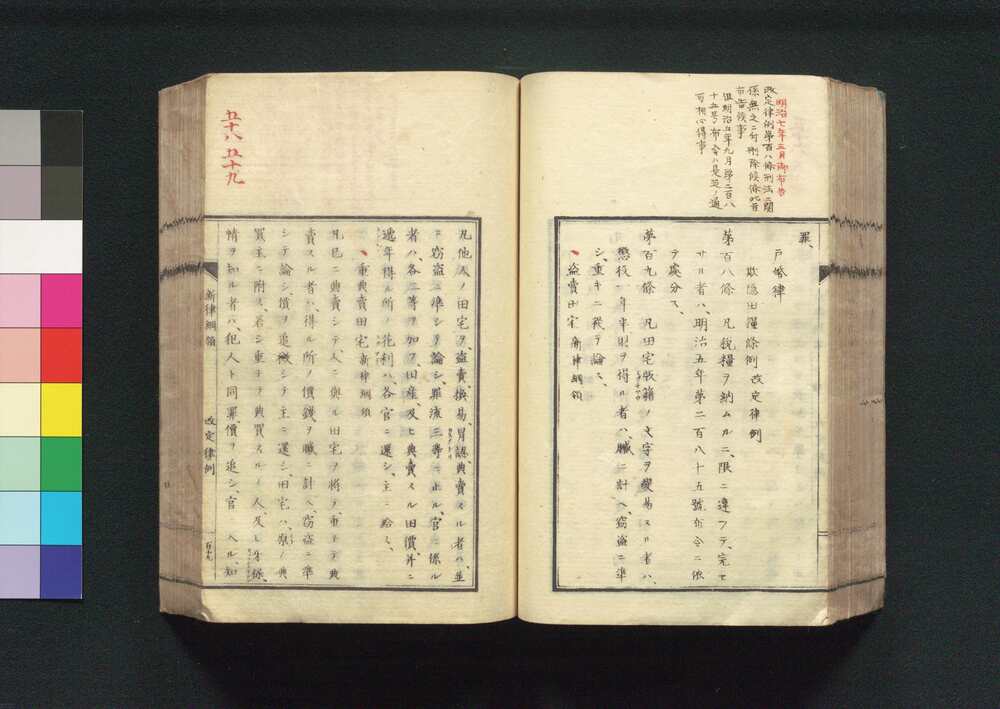 明治七年三月御布告
改定律例第百八條刑法ニ関
係無之ニ付刪除候條此旨
布告候事
但明治五年九月第二百八
十五号布令ハ是迄ノ通
可相心得事
罪、
戸婚律
欺隠田糧條例 改定律例
第百八條 凡税糧ヲ納ムルニ、限ニ違フテ、完セ
サル者ハ、明治五年第二百八十五號布令ニ依
テ處分ス、
第百九條 凡田宅版籍ノ文字ヲ變易スル者ハ、
懲役一年半財ヲ得ル者ハ、贓ニ計ヘ、窃盗ニ準
シ、重キニ從テ論ス、
盗賣田宅 新律綱領
五十八 五十九
凡他人ノ田宅ヲ、盗賣換易、冒認典賣スル者ハ、並
ニ窃盗ニ準シテ論シ、罪流三等ニ止ル、官ニ係ル
者ハ、各二等ヲ加フ田産、及ヒ典賣スル田價、并ニ
遞年得ル所ノ花利ハ、各官ニ還シ、主ニ給ス、
重典賣田宅 新律綱領
凡已ニ典賣シテ、人ニ與ル田宅ヲ将テ、重子テ典
賣スル者ハ、得ル所ノ價錢ヲ贓ニ計ヘ、窃盗ニ準
シテ論シ、價ヲ追徴シテ主ニ還シ、田宅ハ、原ノ典
買主ニ附ス、若シ重子テ典買スルノ人、及ヒ牙保、
情ヲ知ル者ハ、犯人ト同罪、價ヲ追シ、官ニ入ル、知
新律綱領 改定律例 百十九